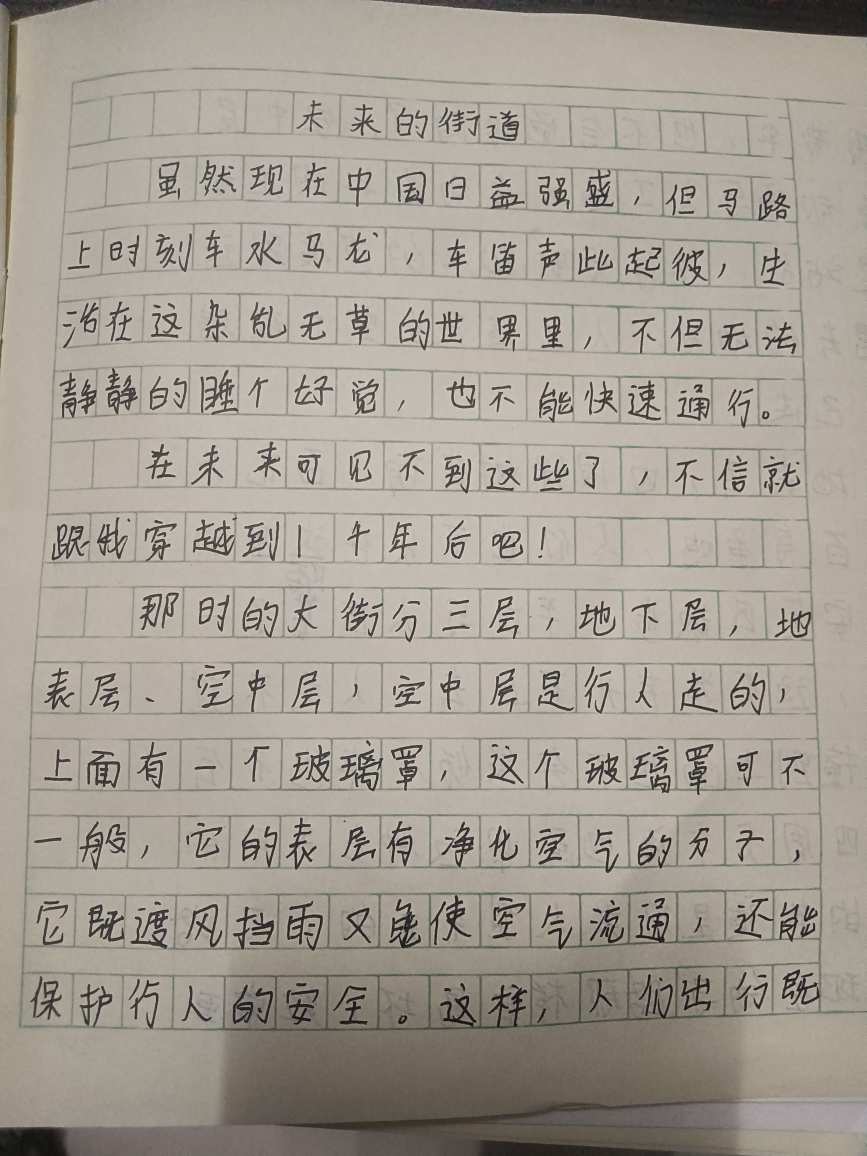 未来的街道
虽然现在中国日益强盛，但马路
上时刻车水马龙，车笛声此起彼，生
活在这杂乱无草的世界里，不但无法
静静的睡个好觉，也不能快速通行。
在未来可见不到这些了，不信就
跟我穿越到1千年后吧！
那时的大街分三层，地下层，地
表层、空中层，空中层是行人走的，
上面有一个玻璃罩，这个玻璃罩可不
一般，它的表层有净化空气的分子，
它既渡风挡雨又能使空气流通，还能
保护行人的安全。这样，人们出行既